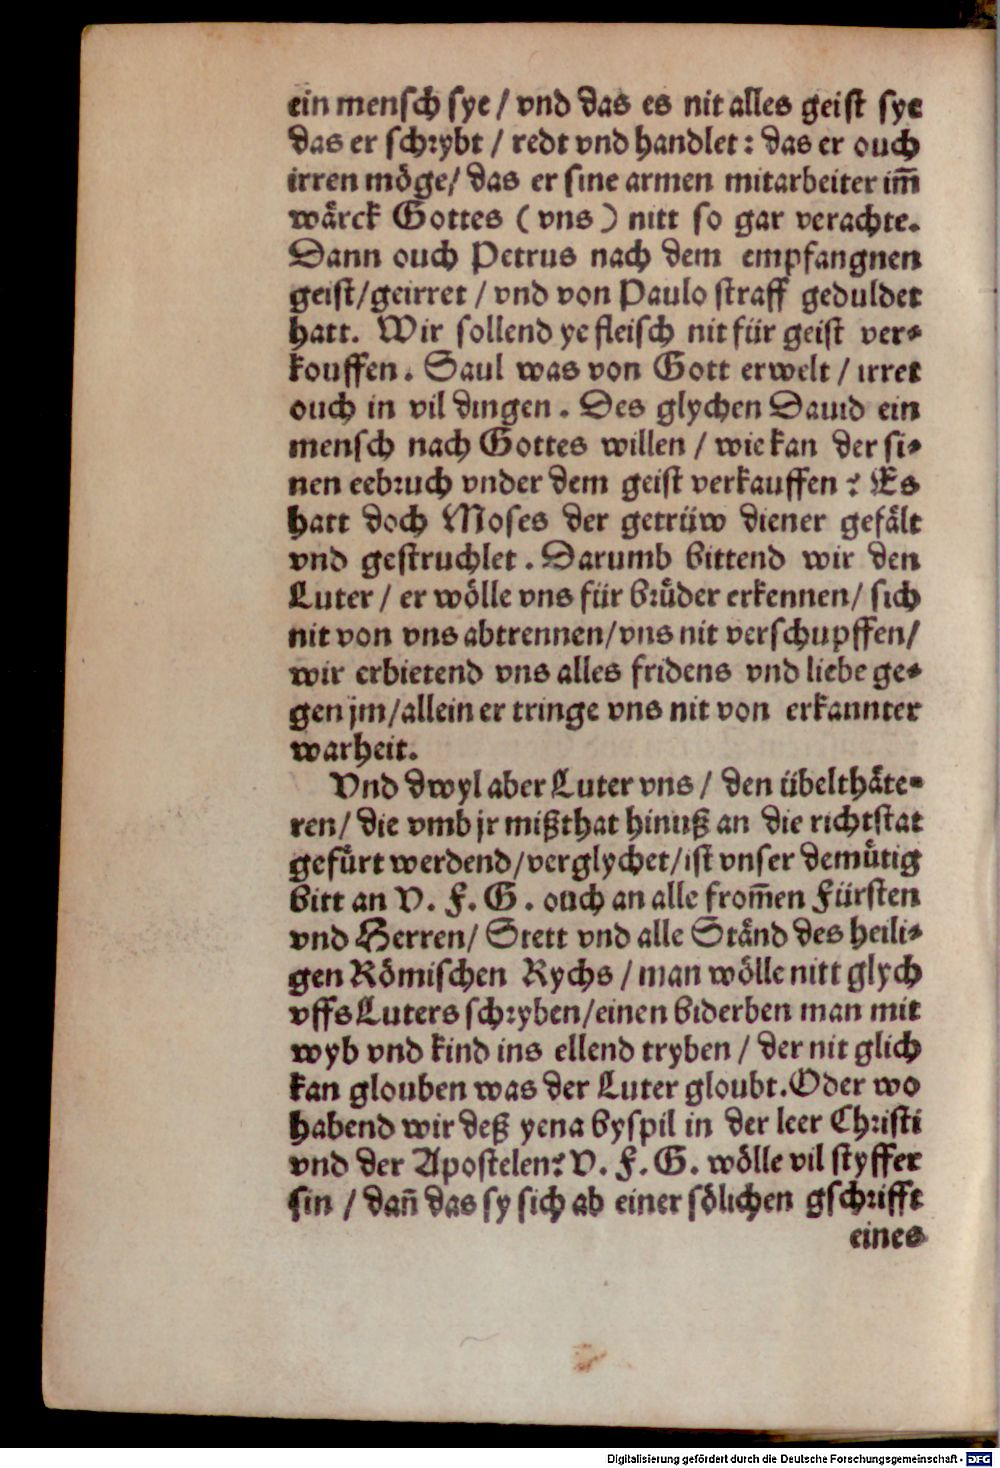 ein mensch sye / vnd das es nit alles geist sye
das er schrybt / redt vnd handlet: das er ouch
irren möge/ das er sine armen mitarbeiter im̅
wårck Gottes ( vns ) nitt so gar verachte.
Dann ouch Petrus nach dem empfangnen
geist/geirret / vnd von Paulo straff geduldet
hatt. Wir sollend ye fleisch nit für geist ver⸗
kouffen. Saul was von Gott erwelt / irret
ouch in vil dingen. Des glychen Dauid ein
mensch nach Gottes willen / wie kan der si⸗
nen eebruch vnder dem geist verkauffen? Es
hatt doch Moses der getrüw diener gefålt
vnd gestruchlet. Darumb bittend wir den
Luter / er wölle vns für brůder erkennen/ sich
nit von vns abtrennen/vns nit verschupffen/
wir erbietend vns alles fridens vnd liebe ge⸗
gen jm/allein er tringe vns nit von erkannter
warheit.
Vnd dwyl aber Luter vns / den übelthåte⸗
ren/ die vmb jr mißthat hinuß an die richtstat
gefůrt werdend/verglychet/ist vnser demůtig
bitt an V. F. G. ouch an alle from̅en Fürsten
vnd Herren/ Stett vnd alle Stånd des heili⸗
gen Römischen Rychs / man wölle nitt glych
vffs Luters schryben/einen biderben man mit
wyb vnd kind ins ellend tryben / der nit glich
kan glouben was der Luter gloubt. Oder wo
habend wir deß yena byspil in der leer Christi
vnd der Apostelen? V. F. G. wölle vil styffer
sin / dan̅ das sy sich ab einer sölichen gschrifft
eines
Digitalisierung gefördert durch die Deutsche Forschungsgemeinschaft - DFG